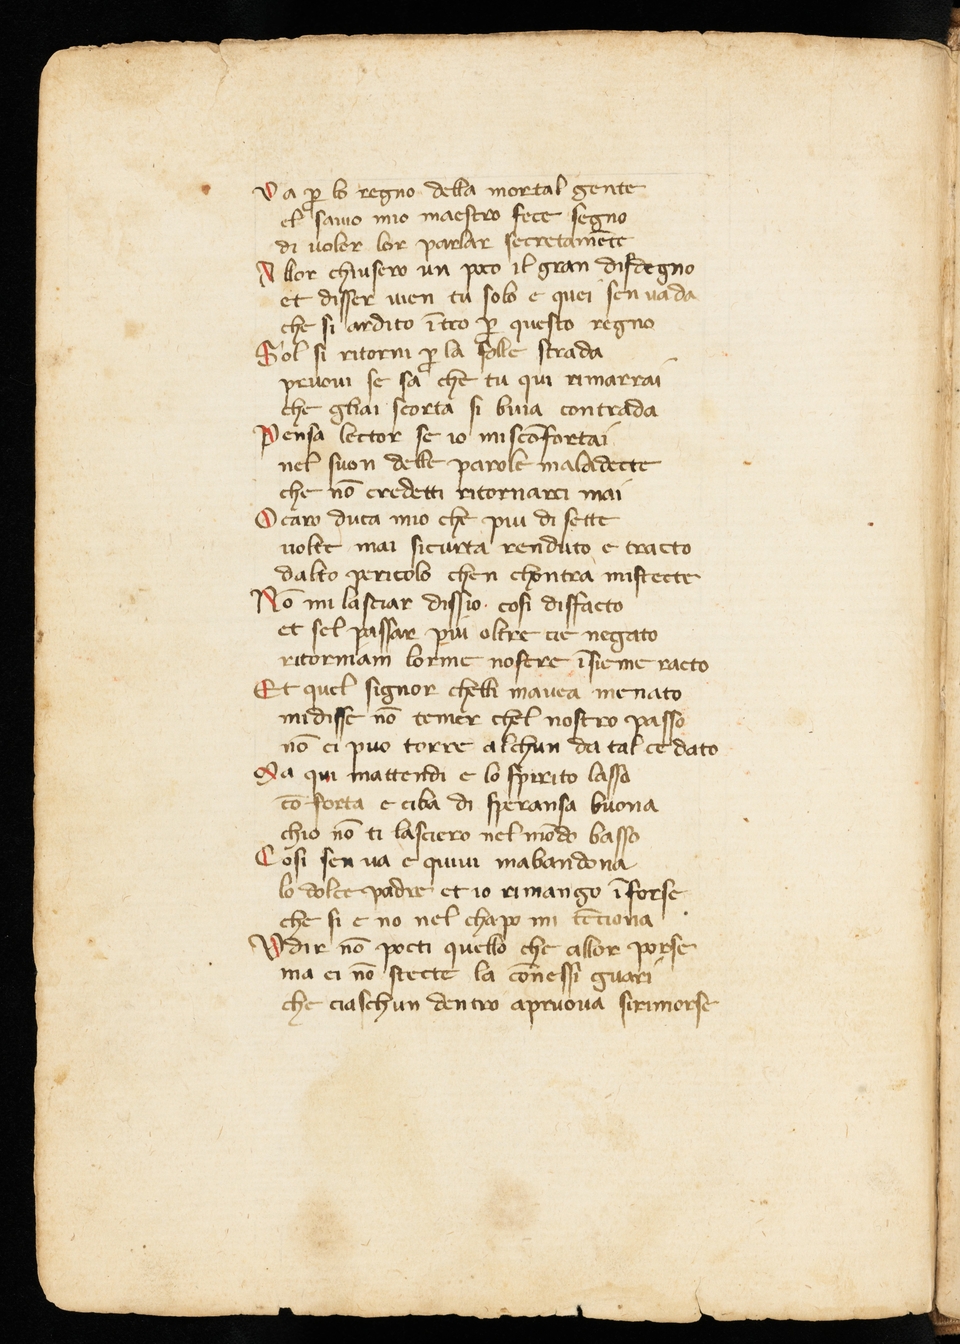 Va ꝑ lo regno della mortal gente
el sauio mio maestro fece segno
di uoler lor parlar secretamēte
Allor chiusero un poco il gran disdegno
et disser uien tu solo e quei sen uada
che si ardito ītro ꝑ questo regno
Sol si ritorni ꝑ la folle strada
pruoui se sa che tu qui rimarrai
che gliai scorta si buia contrada
Pensa lector se io mi scōfortai
nel suon delle parole maladecte
che nō credetti ritornarci mai
O caro duca mio che piu di sette
uolte mai sicurta renduto e tracto
dalto pericolo chen chontra mistecte
Nō mi lasciar dissio· cosi disfacto
et sel passar piu oltre cie negato
ritorniam lorme nostre īsieme racto
Et quel signor chelli mauea menato
midisse nō temer chel nostro passo
nō ci puo torre alchun da tal ce dato
Ma qui mattendi e lo spirito lasso
cōforta e ciba di speransa buona
chio nō ti lasciero nel mōdo basso
Cosi sen ua e quiui mabandona
lo dolce padre et io rimango īforse
che si e no nel chapo mi tēciona
Vdir nō pocti quello che allor porse
ma ei nō stecte la cōnessi guari
che ciaschun dentro apruoua sirimorse